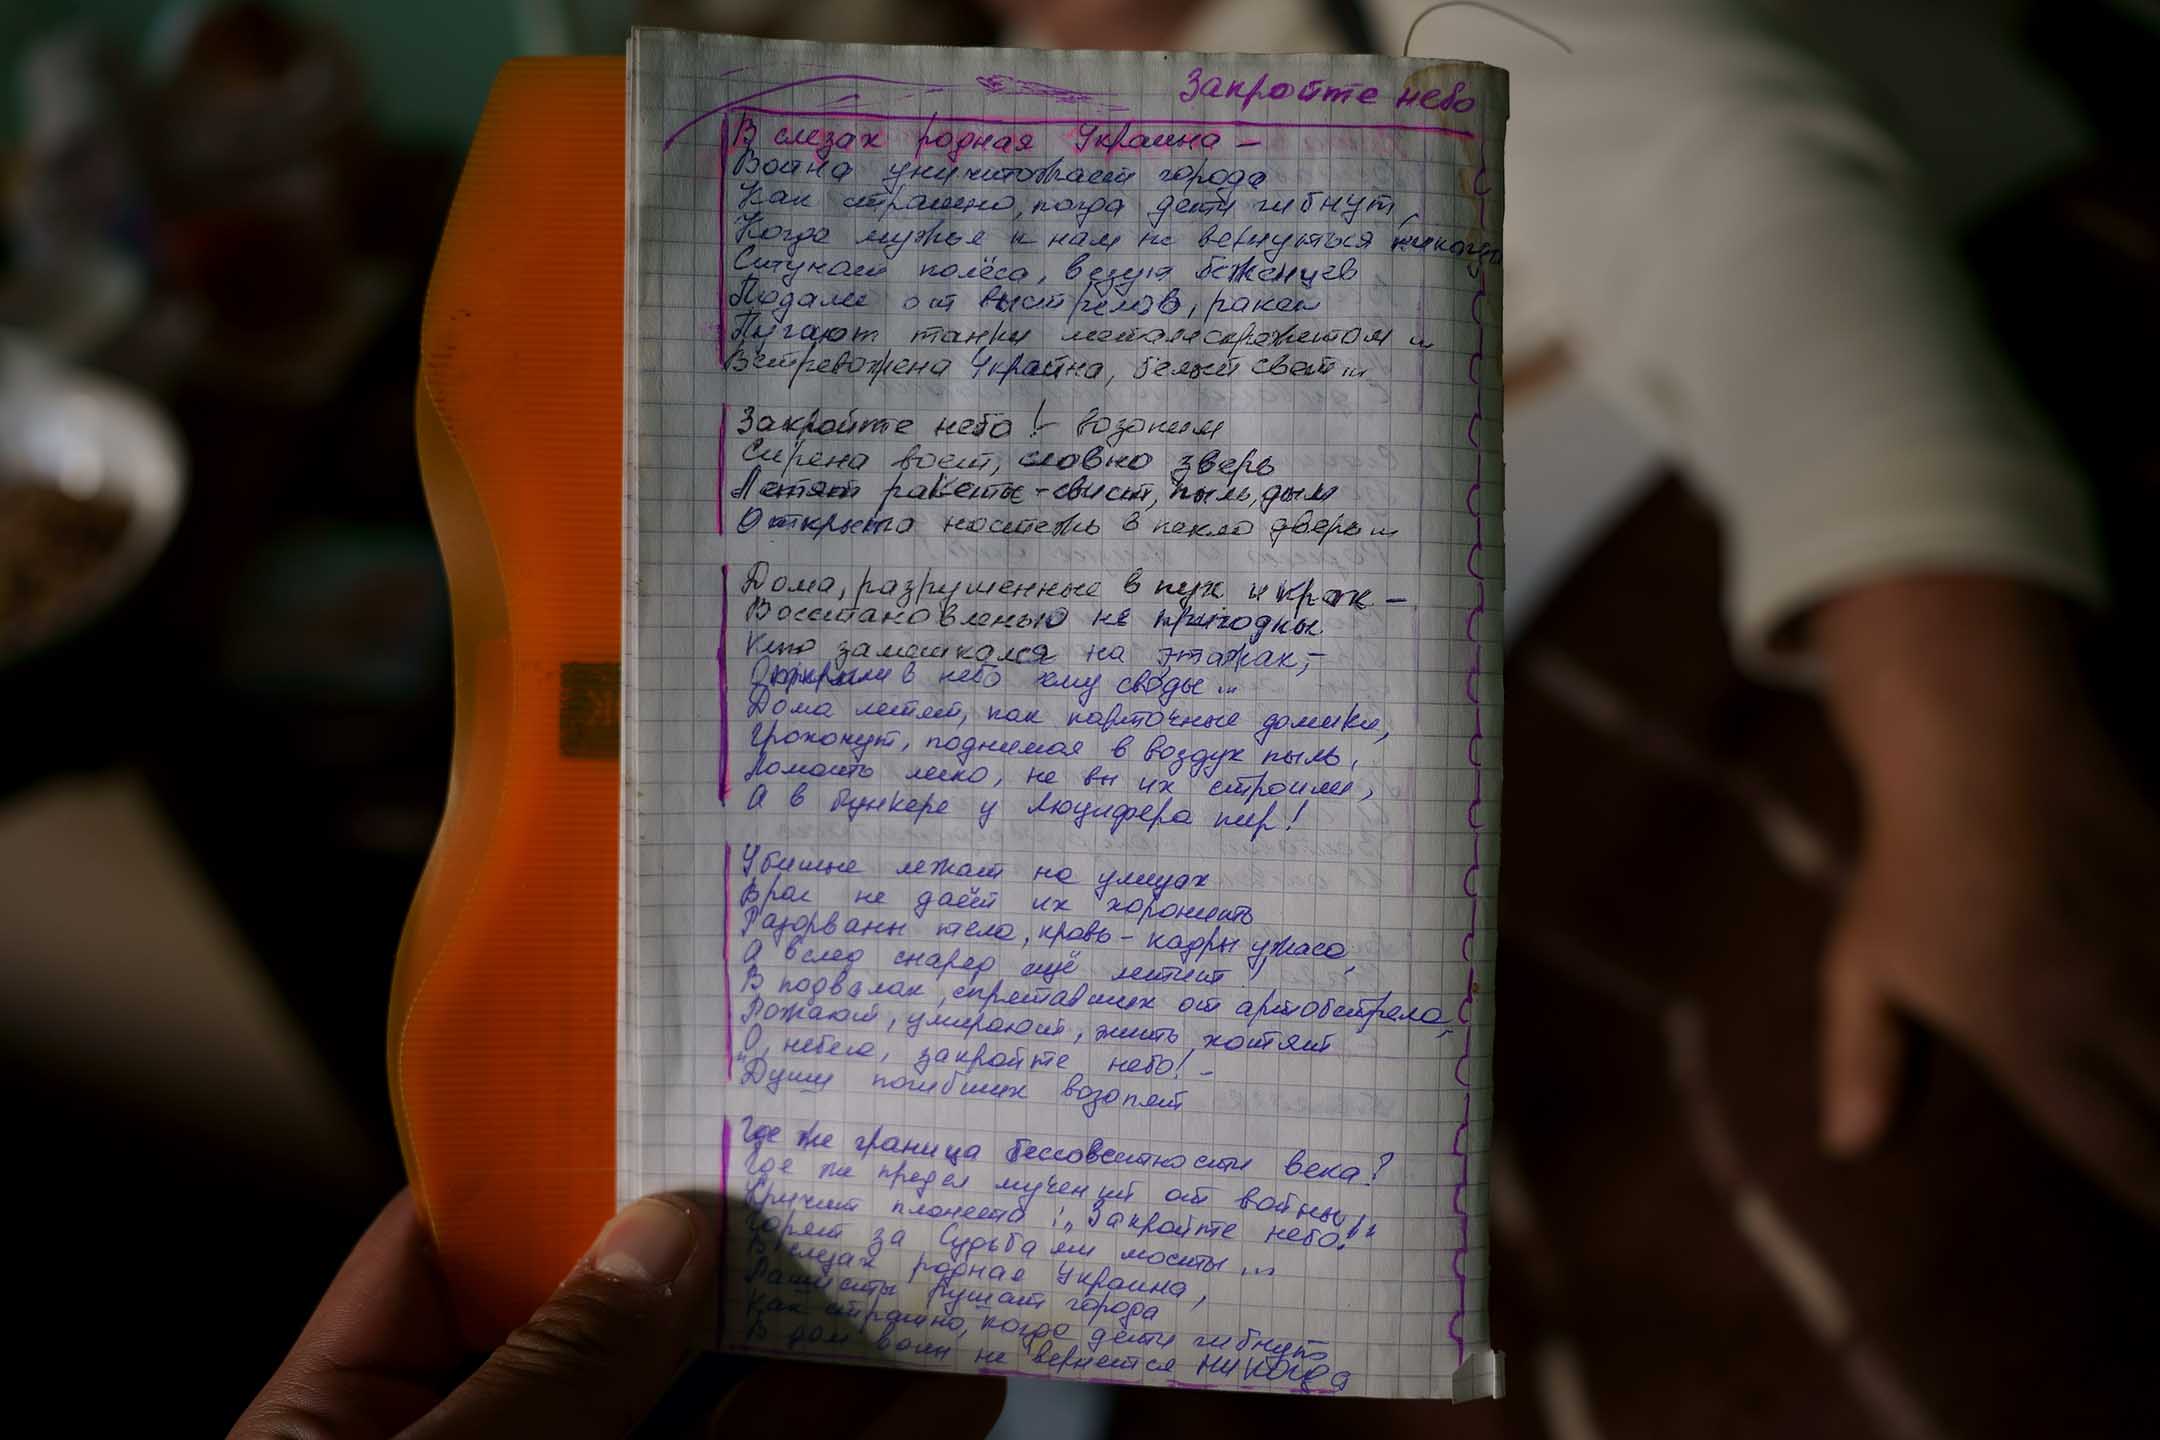 Закройте небо
В слезах родная Украина –
Война уничтожает города
Как страшно, когда дети гибнут,
Когда мужья к нам не вернуться никогда
Стучат колёса, везут беженцев
Подале от выстрелов, ракет
Пугают танки металлоскрежетом ...
Встревожена Украйна, белый свет...
Закройте небо! – возопим
Сирена воет, словно зверь
Летят ракеты – свист, пыль, дым
Открыта настежь в пекло дверь...
Дома, разрушенные в пух и прах –
Восстановленью не пригодны.
Кто замешкался на этажах, –
Открыли в небо ему своды...
Дома летят, как карточные домики,
Грохочут, поднимая в воздух пыль,
Ломать легко, не вы их строили,
А в бункере у Люцифера пир!
Убитые лежат на улицах
Враг не даёт их хоронить
Разорваны тела, кровь – кадры ужаса,
А вслед снаряд ещё летит!
В подвалах, спрятавших от артобстрела,
Рожают, умирают, жить хотят
"О, небеса, закройте небо! –
Души погибших возопят
Где же граница бессовестности века?
Где же предел мучений от войны
Кричит планета: „Закройте небо!!"
Горят за Судьбами мосты ...
В слезах родная Украина,
Рашисты рушат города
Как страшно, когда дети гибнут
В дом воин не вернется никогда